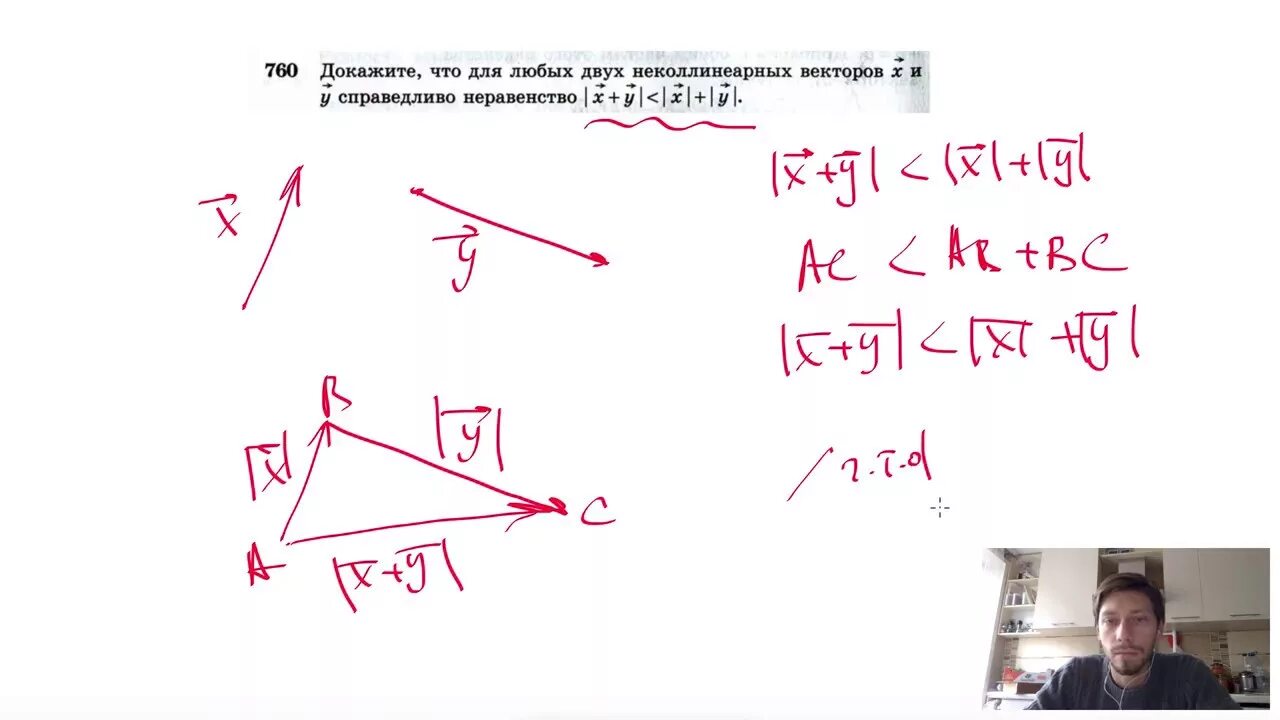 760 Докажите, что для любых двух неколлинеарных векторов x⃗ и
y⃗ справедливо неравенство |x⃗+y⃗|<|x⃗|+|y⃗|.
x⃗
y⃗
|x⃗+y⃗| < |x⃗|+|y⃗|
AC < AB + BC
|x⃗+y⃗| < |x⃗| + |y⃗|
B
|x⃗|
|y⃗|
A
C
|x⃗+y⃗|
ч.т.д